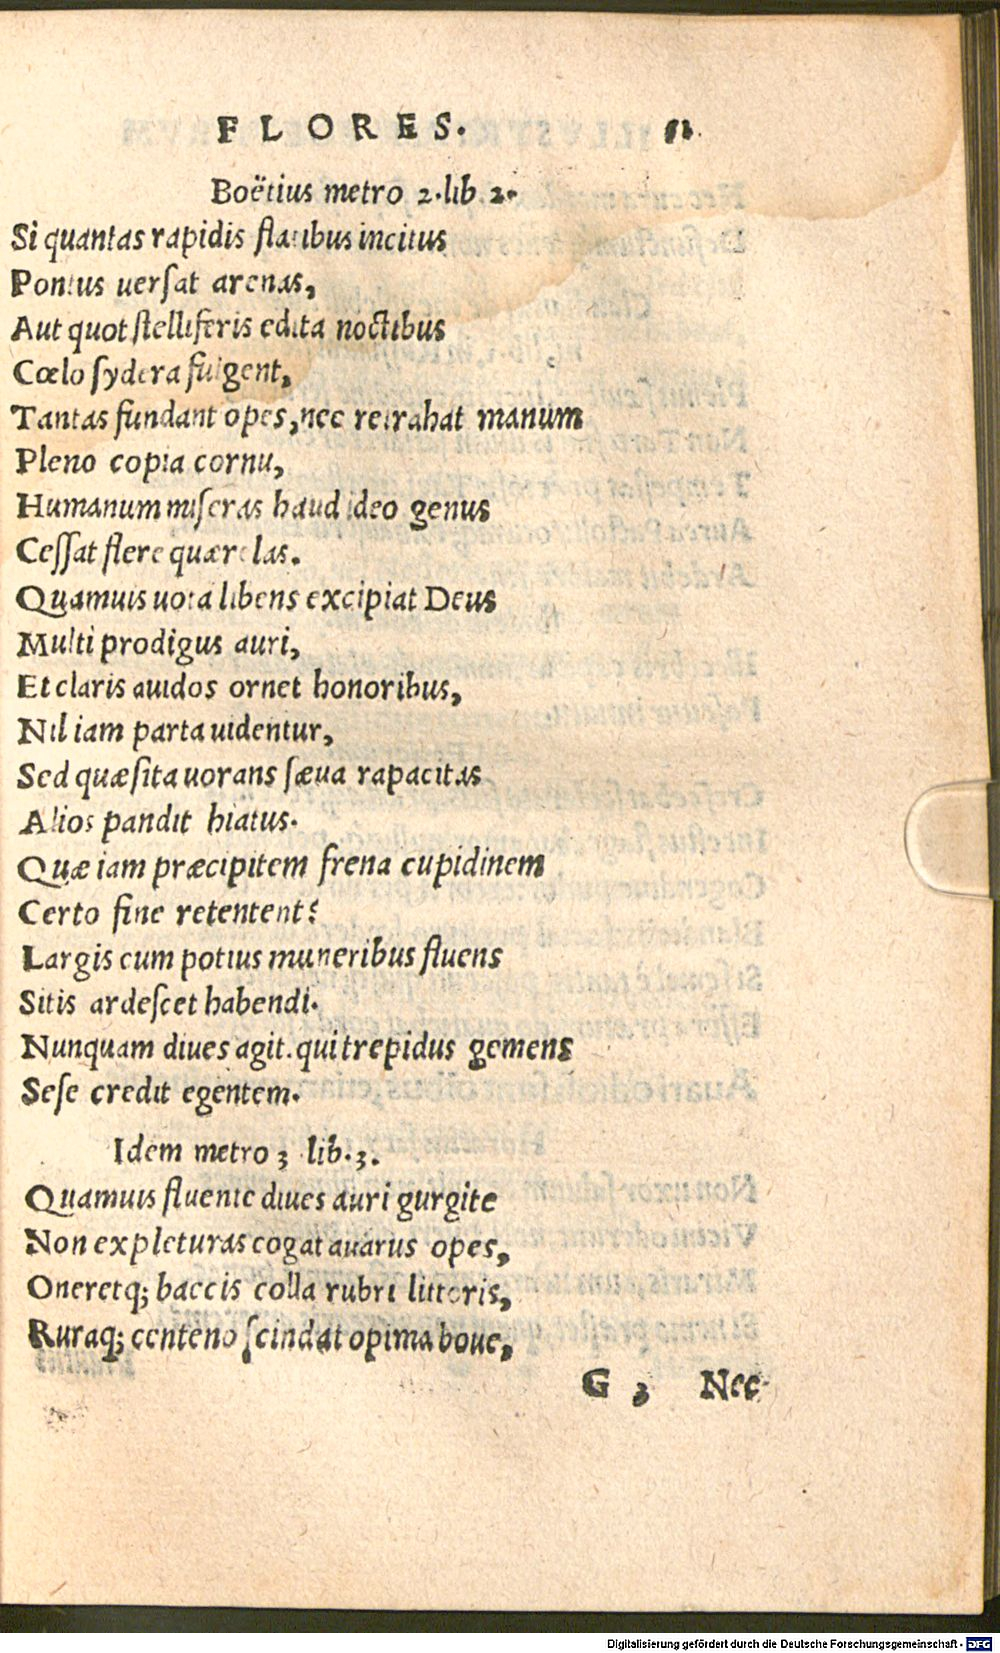 FLORES. 51
Boëtius metro 2. lib. 2.
Si quantas rapidis flatibus incitus
Pontus uersat arenas,
Aut quot stelliferis edita noctibus
Cœlo sydera fulgent,
Tantas fundant opes, nec retrahat manum
Pleno copia cornu,
Humanum miseras haud ideo genus
Cessat flere quærelas.
Quamuis uota libens excipiat Deus
Multi prodigus auri,
Et claris auidos ornet honoribus,
Nil iam parta uidentur,
Sed quæsita uorans sæua rapacitas
Alios pandit hiatus.
Quæ iam præcipitem frena cupidinem
Certo fine retentent?
Largis cum potius muneribus fluens
Sitis ardescet habendi.
Nunquam diues agit. qui trepidus gemens
Sese credit egentem.
Idem metro 3 lib. 3.
Quamuis fluente diues auri gurgite
Non expleturas cogat auarus opes,
Oneretq; baccis colla rubri littoris,
Ruraq; centeno scindat opima boue,
G 3 Nec
Digitalisierung gefördert durch die Deutsche Forschungsgemeinschaft - DFG